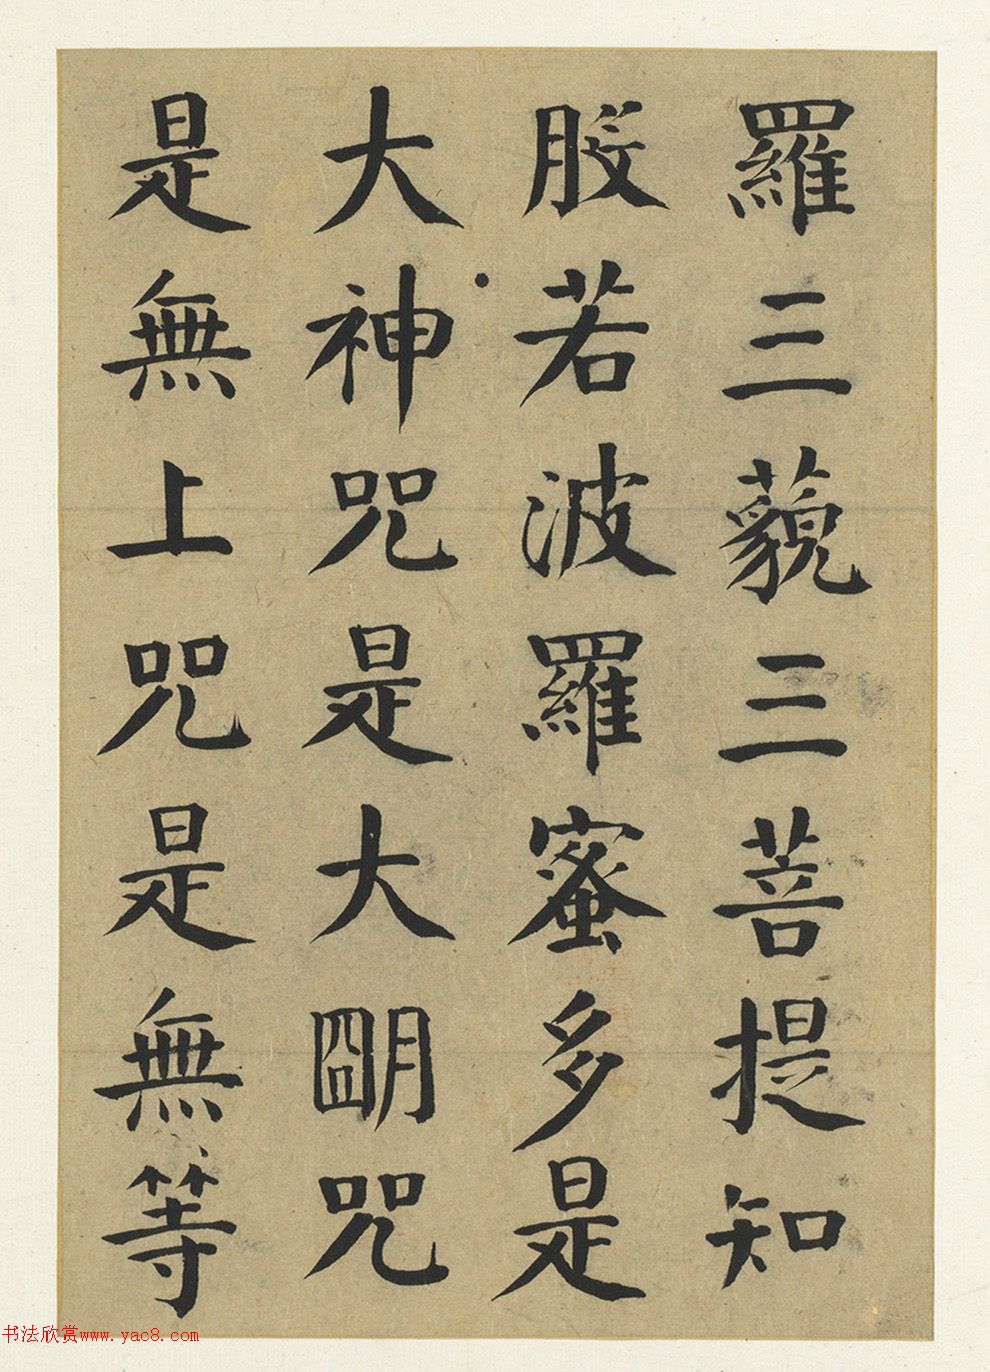 羅三藐三菩提知
般若波羅蜜多是
大神咒是大朙咒
是無上咒是無等
书法欣赏www.yac8.com